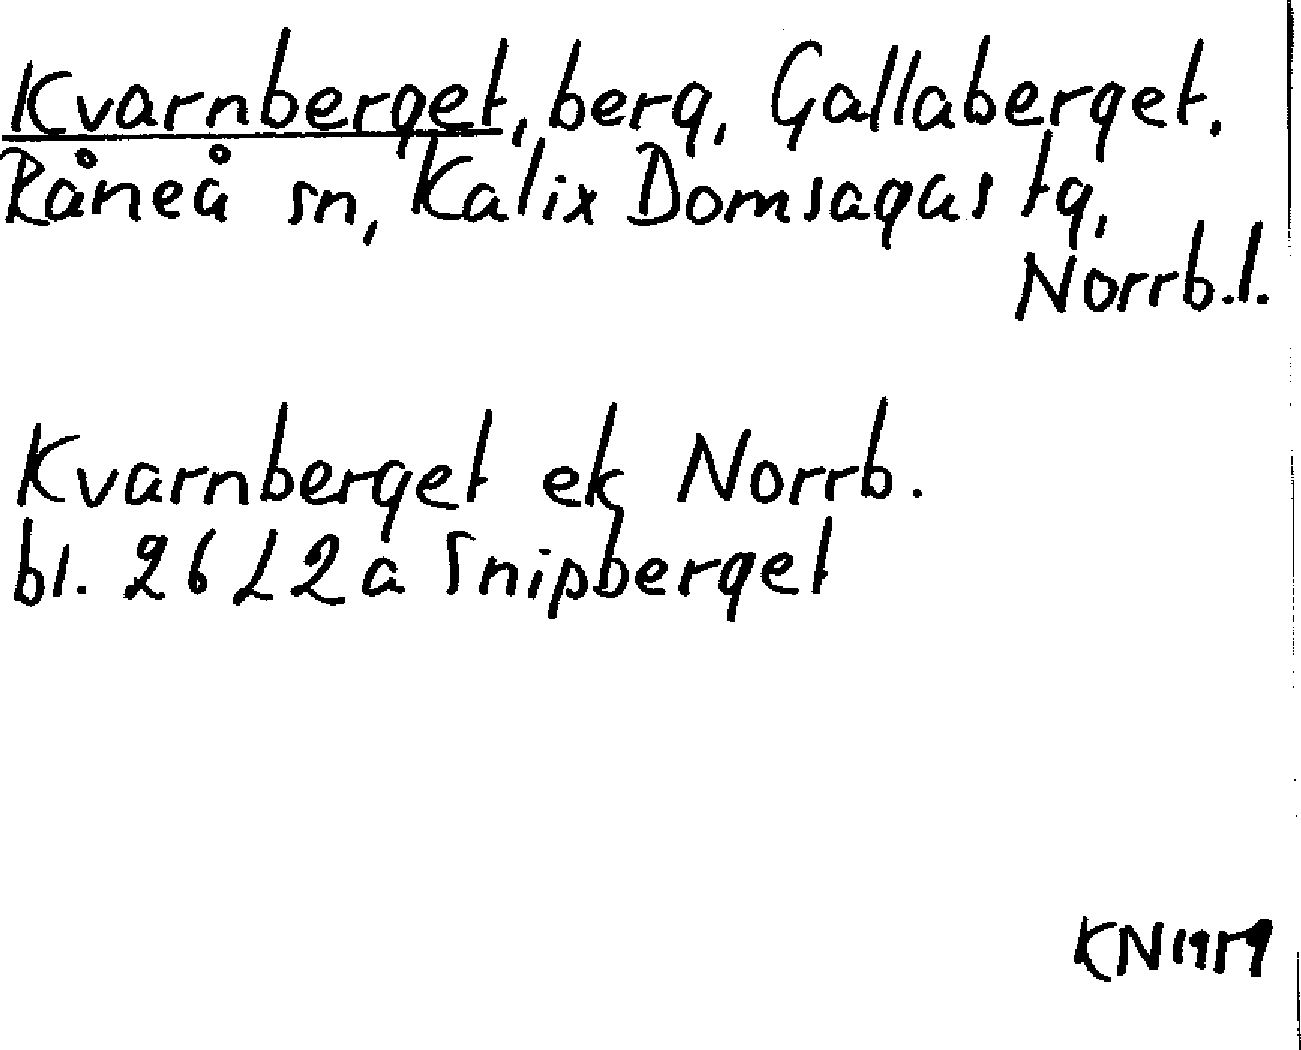 Kvarnberget, berg, Gallaberget.
Råneå sn, Kalix Domsagas tg,
Norrb.l.
Kvarnberget ek Norrb.
bl. 26 L 2 a Snipberget
KN 1959